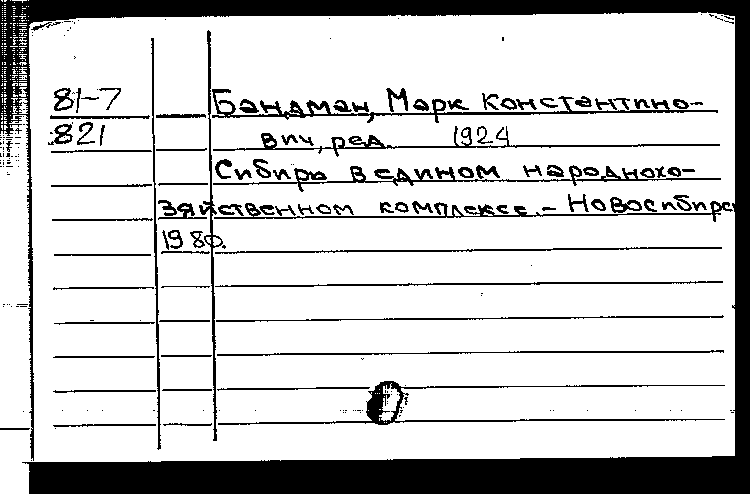 81-7 Бандман, Марк Константино-
821 вич, ред. 1924
Сибирь в едином народнохо-
зяйственном комплексе. - Новосибирск
1980.